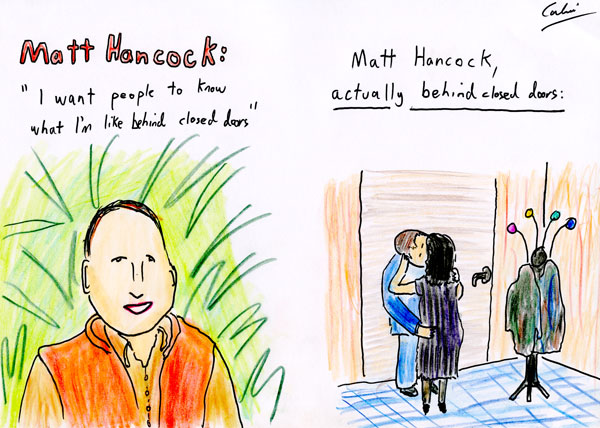 Matt Hancock:
"I want people to know
what I'm like behind closed doors"
Matt Hancock,
actually behind closed doors: